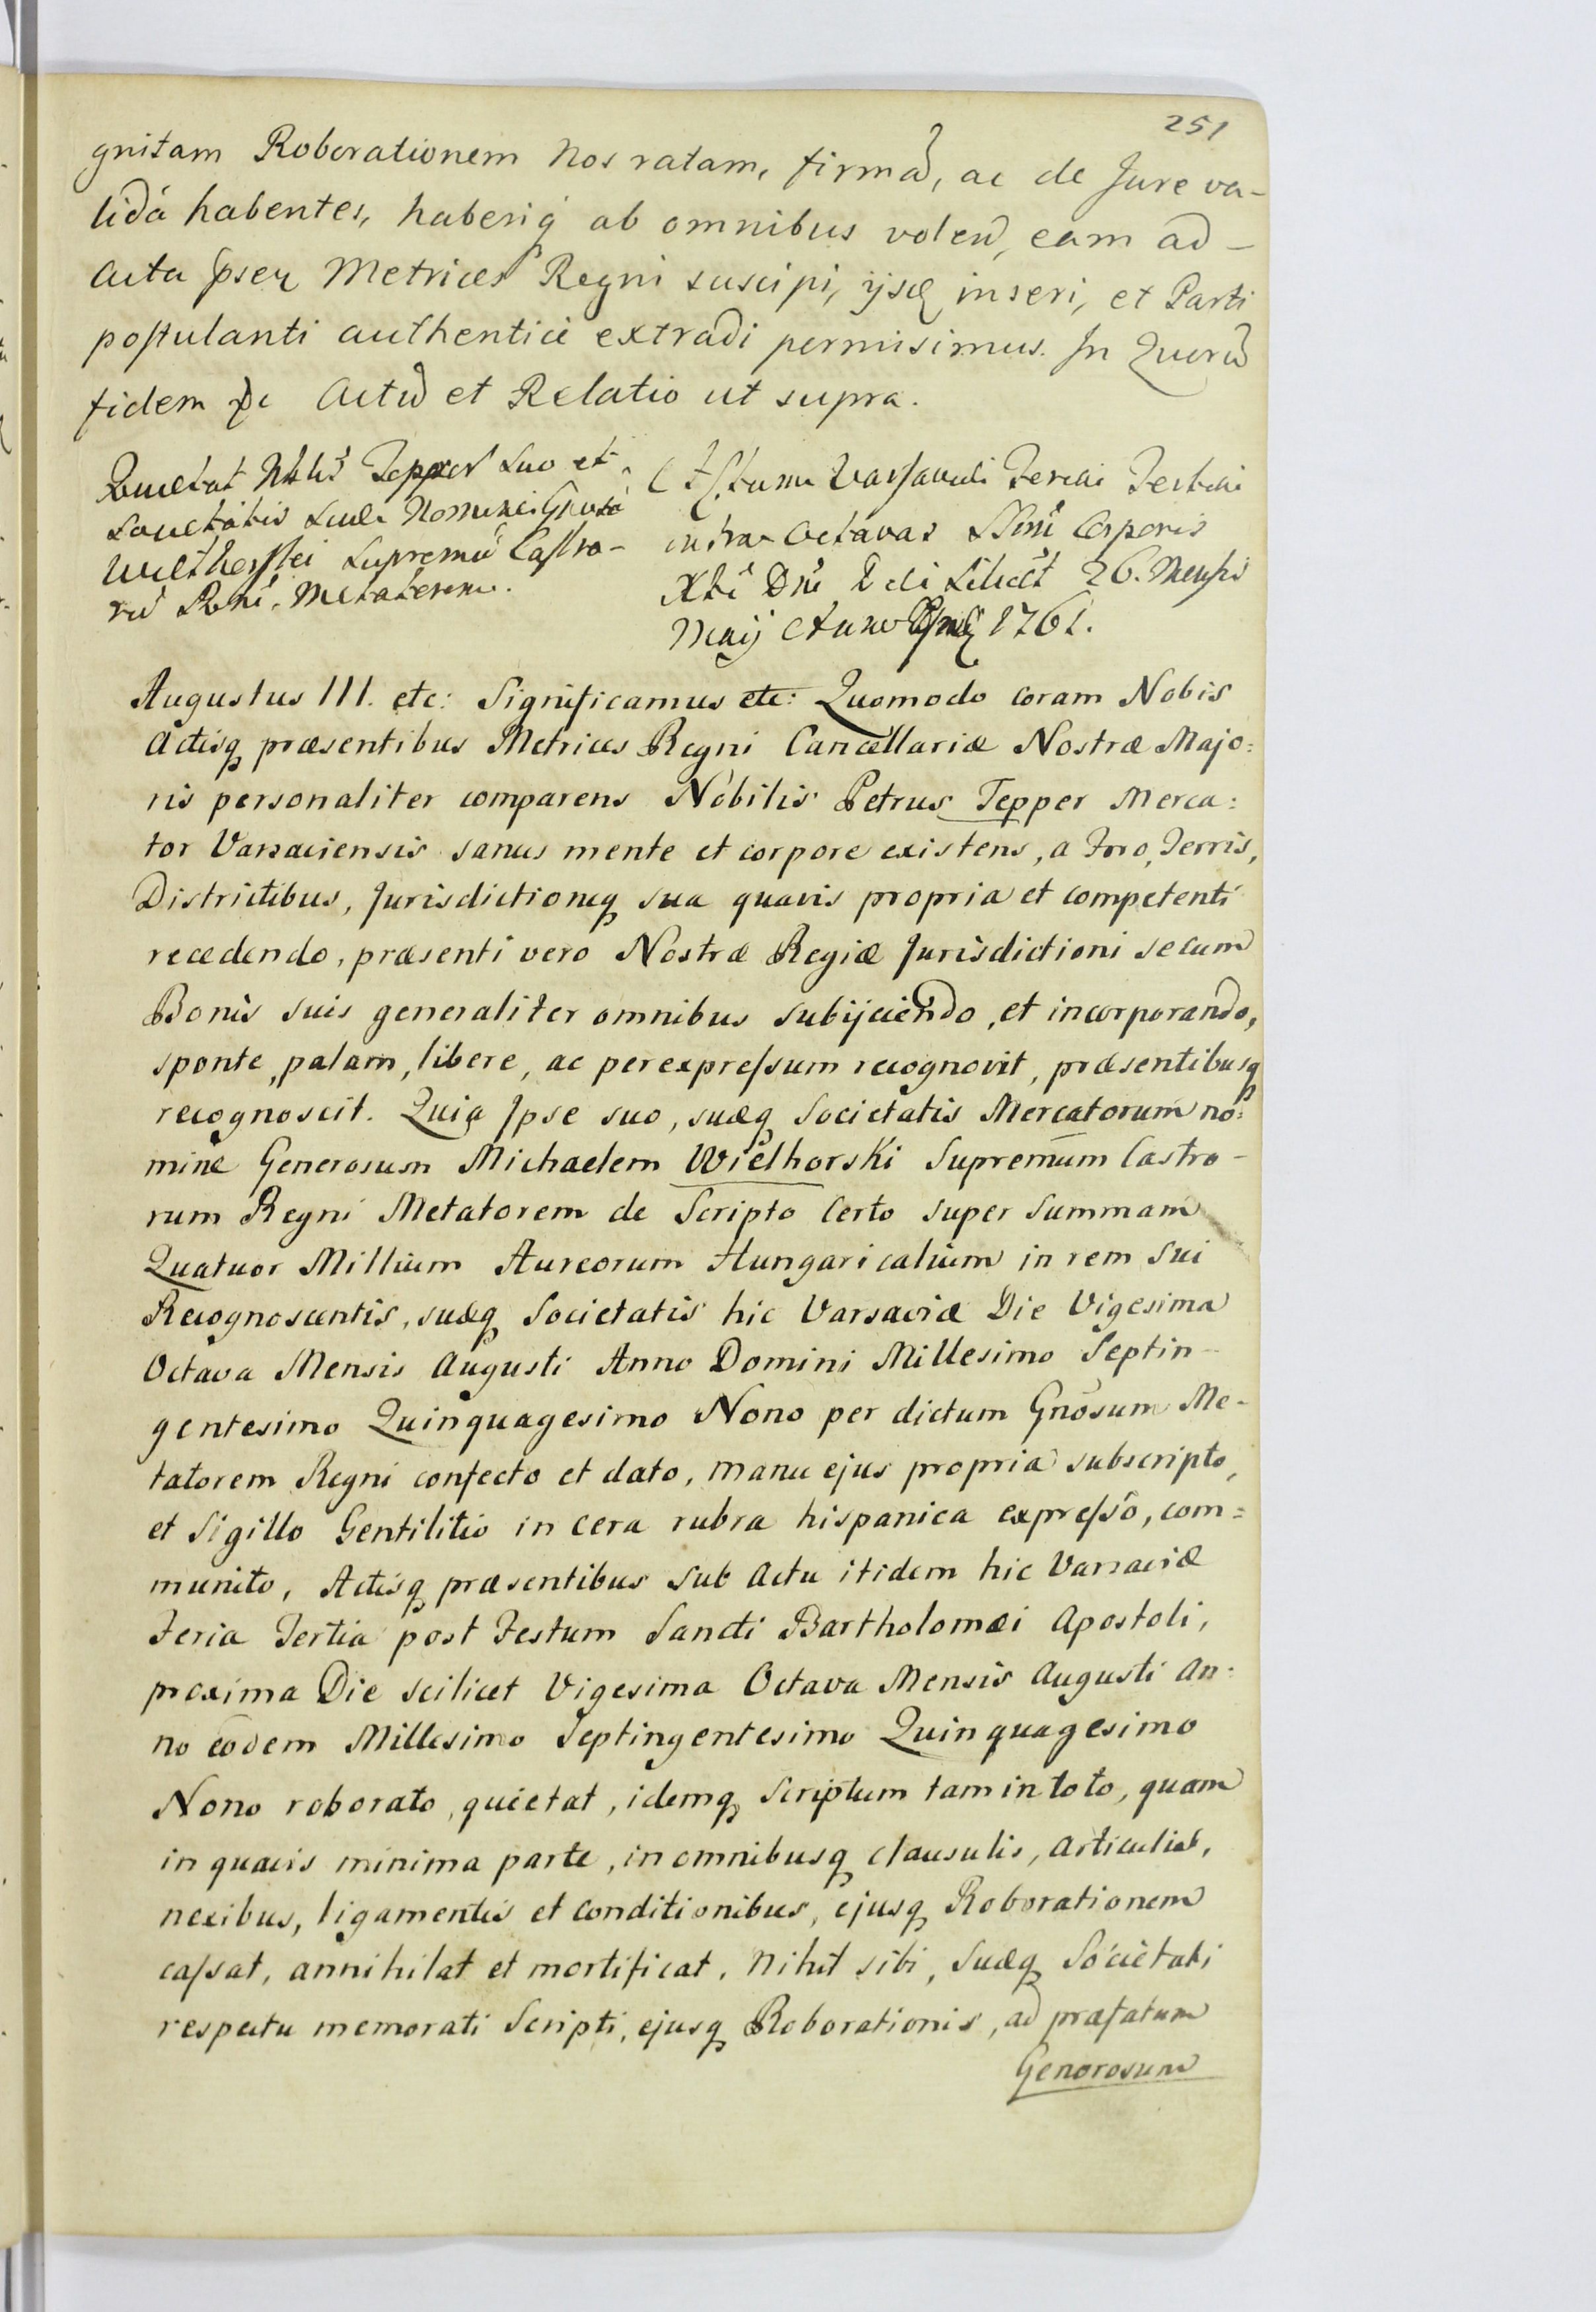 251
gnitam Roborationem Nos ratam, firmã, ac de Jure va-
lidã habentes, haberiq̃ ab omnibus volen̄, eam ad-
Acta p̃sen Metrices Regni suscipi, ijsq̃ inseri, et Parti
poſtulanti authentice extradi permisimus. In Quorũ
fidem &c Actũ et Relatio ut supra.
Quietat Nblis̃ Tepper suo et
Societatis suæ Nomine Gnosũ
Wielhorſki Supremũ Caſtro-
rũ Rgni. Metatorem.
Actum Varſaviæ Feria Tertia
intra Octavas SSmi Corporis
Xti Dni Die scilicet 26. Menſis
Maij Anno 1761.
Augustus III. etc: Significamus etc: Quomodo coram Nobis
Actisq præsentibus Metrices Regni Cancellariæ Nostræ Majo:
ris personaliter comparens Nobilis Petrus Tepper Merca:
tor Varsaviensis sanus mente et corpore existens, a Foro, Terris,
Districtibus, Jurisdictioneq sua quavis propria et competenti
recedendo, præsenti vero Nostræ Regiæ Jurisdictioni se cum
Bonis suis generaliter omnibus subijciendo, et incorporando,
sponte, palam, libere, ac per expreſsum recognovit, præsentibusq
recognoscit. Quia Ipse suo, suæq Societatis Mercatorum no:
mine Generosum Michaelem Wielhorski Supremum Castro-
rum Regni Metatorem de Scripto Certo super Summam
Quatuor Millium Aureorum Hungaricalium in rem Sui
Recognoscentis, suæq Societatis hic Varsaviæ Die Vigesima
Octava Mensis Augusti Anno Domini Millesimo Septin-
gentesimo Quinquagesimo Nono per dictum Gnõsum Me-
tatorem Regni confecto et dato, manu ejus propria subscripto,
et Sigillo Gentilitio in cera rubra hispanica expreſso, com=
munito, Actisq præsentibus sub Actu itidem hic Varsaviæ
Feria Tertia post Festum Sancti Bartholomæi Apostoli,
proxima Die scilicet Vigesima Octava Mensis Augusti An:
no eodem Millesimo Septingentesimo Quinquagesimo
Nono roborato, quietat, idemq Scriptum tam in toto, quam
in quavis minima parte, in omnibusq clausulis, articulis,
nexibus, ligamentis et conditionibus, ejusq Roborationem
caſsat, annihilat et mortificat. Nihil sibi, suæq Societati
respectu memorati Scripti, ejusq Roborationis, ad præfatum
Generosum